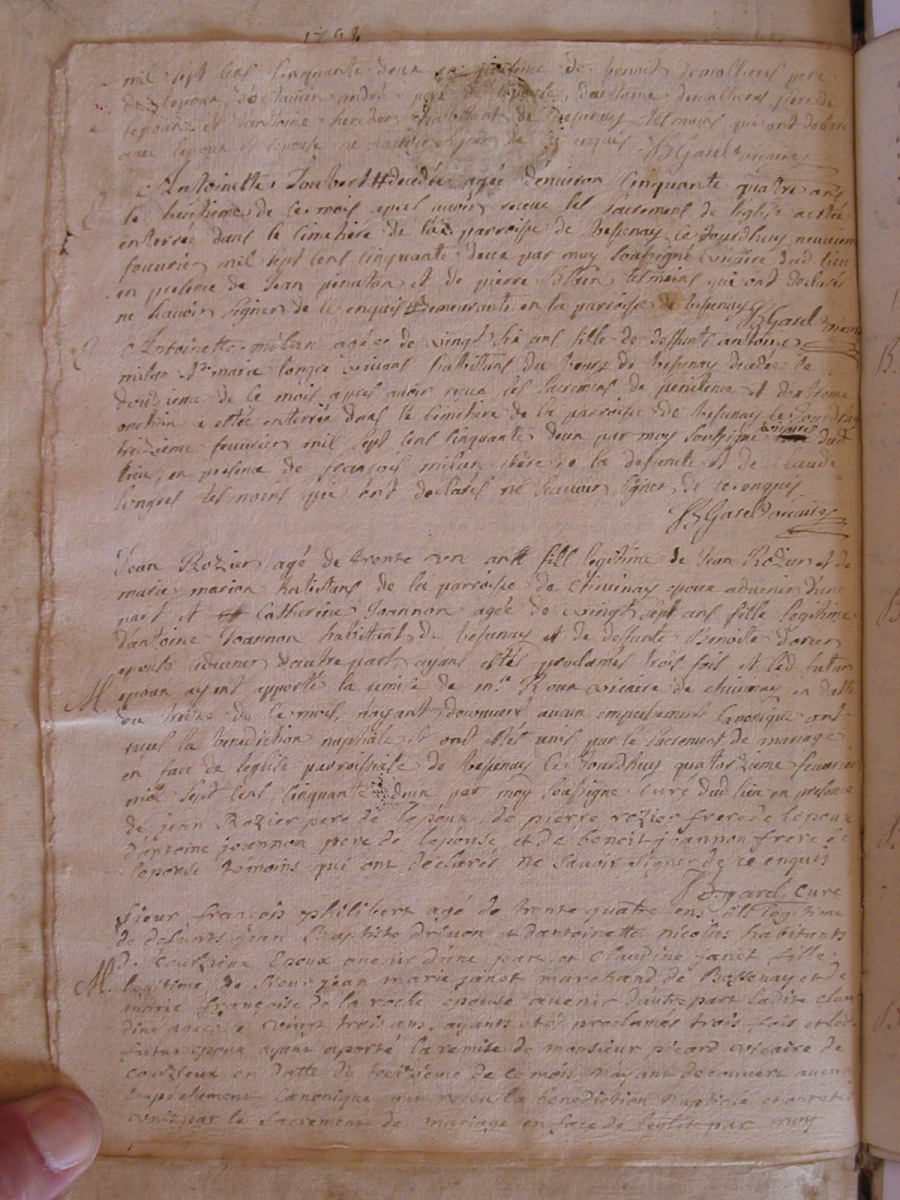 mil sept cens cinquante deux en présence de benoit demollieres pere
de lepoux, destienne andré pere de lepouse, dantoine demollieres frere de
lepoux et dantoine habitant de Bessenay tesmoins qui ont declaré
avec lepoux et lepouse ne scavoir signer de ce enquis JBGarel vicaire
Antoinette Joubert # decedée agée denviron cinquante quatre ans
le huitieme de ce mois apres avoir receue les sacremens de leglise a esté
enterrée dans le cimetière de la parroisse de Bessenay ce jourdhuy neuvieme
fevrier mil sept cens cinquante deux par moy soussigné vicaire dud lieu
en presence de Jean et de pierre Blain tesmoins qui ont declarés
ne scavoir signer de ce enquis # demeurante en la parroisse de bessenay JBGarel vicaire
Antoinette milan agée de vingt six ans fille de deffunt antoine
milan & marie longre vivans habitans du bourg de Bessenay decedée le
douzieme de ce mois apres avoir receue les sacremens de penitence et dextreme
onction a estée enterrée dans le cimetière de la parroisse de Bessenay ce jourdhuy
treizieme fevrier mil sept cens cinquante deux par moy soussigné vicaire dud
lieu, en presence de françois milan frère de la defunte et de Claude
longres tesmoins qui ont declarés ne scavoir signer de ce enquis
JBGarel vicaire
Jean Rozier agé de trente un ans fils legitime de Jean Rozier et de
marie marion habitans de la parroisse de chevinay epoux advenir d'une
part et Catherine Joannon agée de vingt sept ans fille legitime
d'antoine Joannon habitant de bessenay et de defunte Benoite
epouse advenir d'autre part, ayans estés proclamés trois fois et led futur
M. epoux ayant apporté la remise de mr. Roux vicaire de chevinay en datte
du treize de ce mois, nayant decouvert aucun empeschement canonique ont
receus la benediction nuptiale et ont estés unis par le sacrement de mariage
en face de leglise parroissiale de Bessenay ce jourdhuy quatorzieme fevrier
mil sept cens cinquante deux par moy soussigné curé dud lieu en presence
de jean Rozier pere de lepoux, de pierre rozier frere de lepoux
d'antoine joannon pere de lepouse et de benoit joannon frere de
lepouse temoins qui ont declarés ne savoir signer de ce enquis
garel curé
Sieur françois philibert agé de trente quatre ans fils legitime
de defunts jean Baptiste drivon et dantoinette nicolas habitants
de courzieux epoux avenir d'une part et claudine janot fille
M. legitime de sieur jean marie janot marchand de Bessenay et de
marie françoise de la roche epouse avenir d'autre part ladite clau
dine agée de vingt trois ans, ayants etés proclamés trois fois et led
futur epoux ayant aporté la remise de monsieur picard vicaire de
courzieux en datte du treizieme de ce mois, nayant decouvert aucun
empechement canonique ont reçu la benediction nuptiale et ont eté
unis par le sacrement de mariage en face de leglise par moy